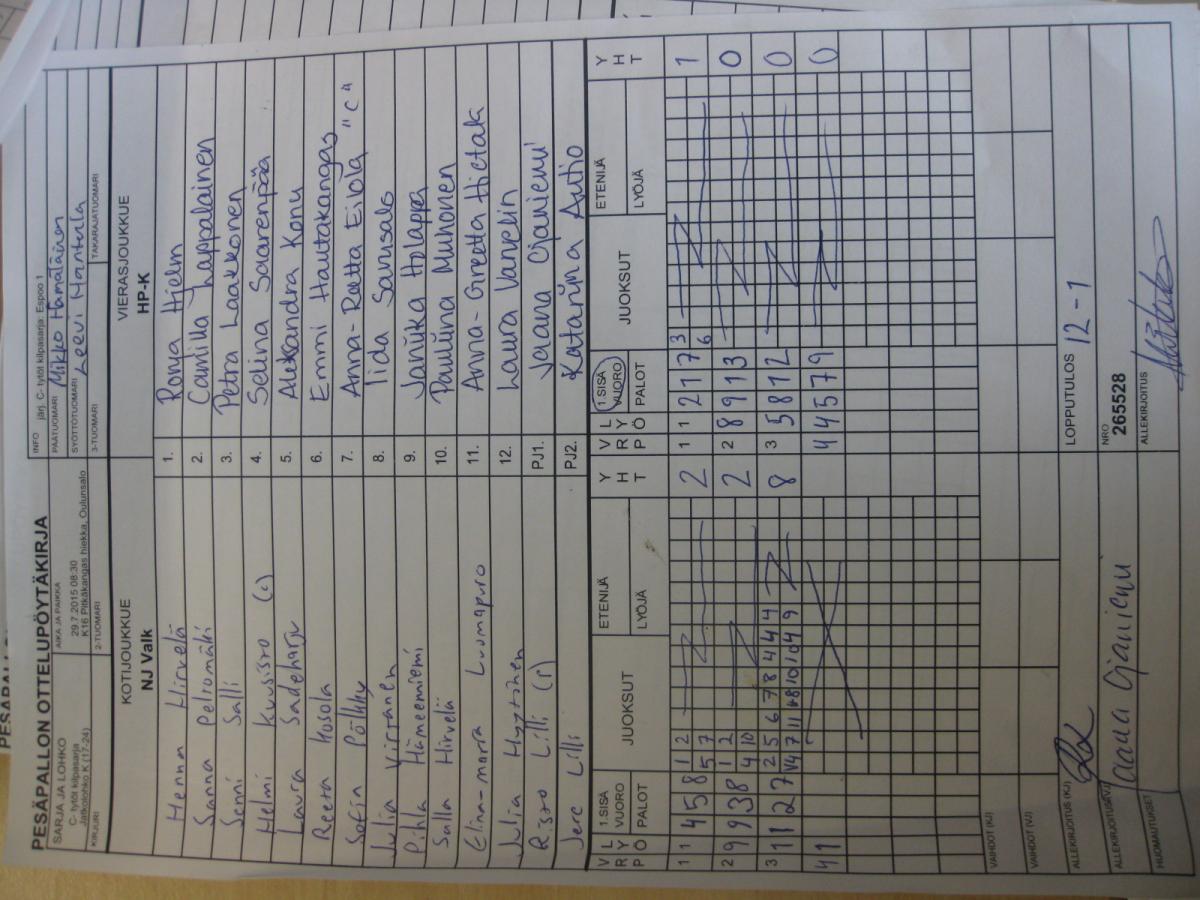 PESÄPALLON OTTELUPÖYTÄKIRJA
SARJA JA LOHKO
C- tytöt kilpasarja
Jatkolohko K (17-24)
AIKA JA PAIKKA
29.7.2015 08:30
K16 Pitkäkangas hiekka, Oulunsalo
INFO järj. C- tytöt kilpasarja: Espoo 1
PÄÄTUOMARI Mikko Hämäläinen
SYÖTTÖTUOMARI Leevi Hantula
KIRJURI
2-TUOMARI
3-TUOMARI
TAKARAJATUOMARI
KOTIJOUKKUE
NJ Valk
VIERASJOUKKUE
HP-K
Henna Hirvelä 1. Ronja Hielm
Sanna Peltomäki 2. Camilla Lappalainen
Jenni Salli 3. Petra Laakkonen
Helmi Kuusisto (c) 4. Selina Saarenpää
Laura Sadeharju 5. Aleksandra Konu
Reeta Kosola 6. Emmi Hautakangas
Sofia Pölkky 7. Anna-Reetta Eilola "c"
Julia Virtanen 8. Iida Savusalo
Pihla Hämeenniemi 9. Janika Holappa
Salla Hirvelä 10. Pauliina Muhonen
Elina-maria Luomapuro 11. Anna-Greetta Hietak
Julia Hyytinen 12. Laura Vanselin
Risto Lilli (r) PJ1. Jaana Ojaniemi
Jere Lilli PJ2. Katariina Autio
V R P L Y Ö 1.SISÄ VUORO PALOT JUOKSUT ETENIJÄ LYÖJÄ Y H T
V R P L Y Ö 1.SISÄ VUORO PALOT JUOKSUT ETENIJÄ LYÖJÄ Y H T
1 1 4 5 8 1 2 2 1 1 2 1 7 3 1
5 7 6
2 9 9 3 8 1 2 2 2 8 9 1 3 0
4 10
3 11 12 7 2 5 6 7 8 4 4 4 8 3 5 8 12 0
4 1 4 4 5 7 9 0
VAIHDOT (KJ)
VAIHDOT (VJ)
ALLEKIRJOITUS (KJ)
LOPPUTULOS 12 - 1
ALLEKIRJOITUS (VJ) Jaana Ojaniemi
NRO
265528
HUOMAUTUKSET
ALLEKIRJOITUS